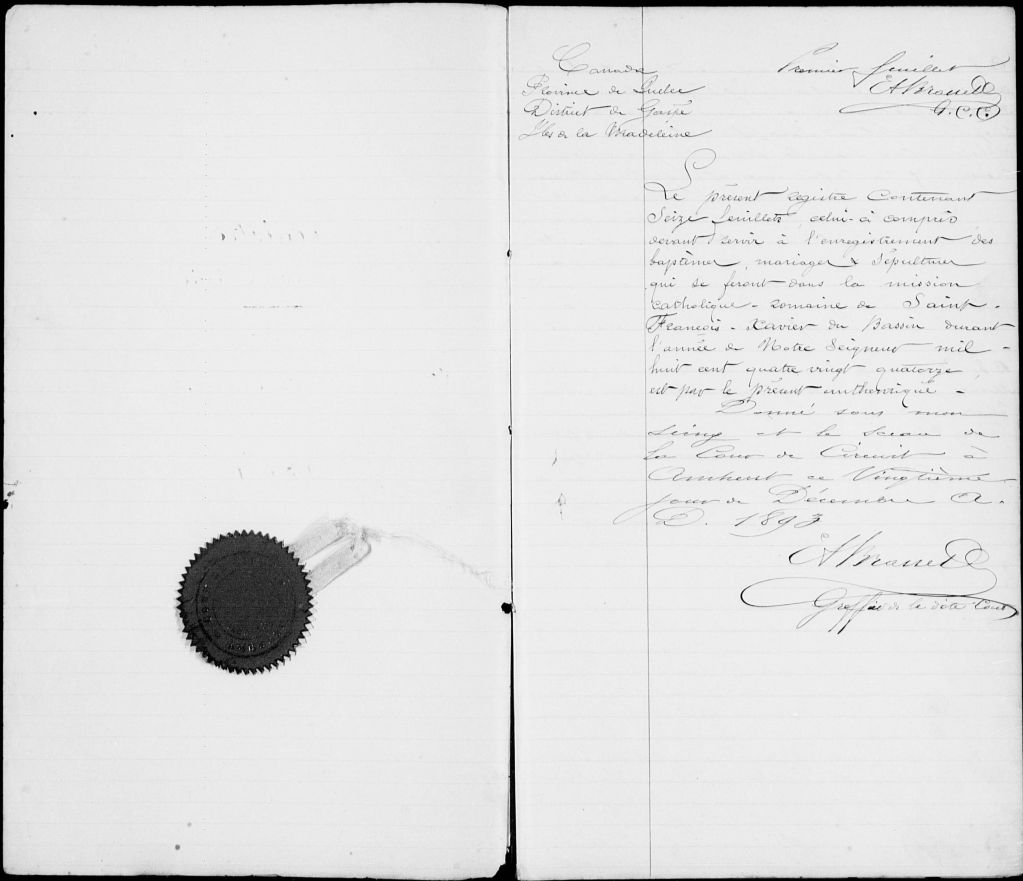 Canada
Province de Québec
District de Gaspé
Iles de la Madeleine
Premier feuillet
G. C. C.
Le présent registre contenant
Seize feuillets, celui-ci compris
devant servir à l'enregistrement des
baptêmes, mariages & Sépultures
qui se feront dans la mission
catholique-romaine de Saint-
François-Xavier du Bassin durant
l'année de Notre Seigneur mil-
huit cent quatre vingt quatorze,
est par le présent authentiqué-
Donné sous mon
seing et le sceau de
la Cour de Circuit à
Amherst ce Vingtième
jour de Décembre A.
D. 1893
Greffier de la dite Cour